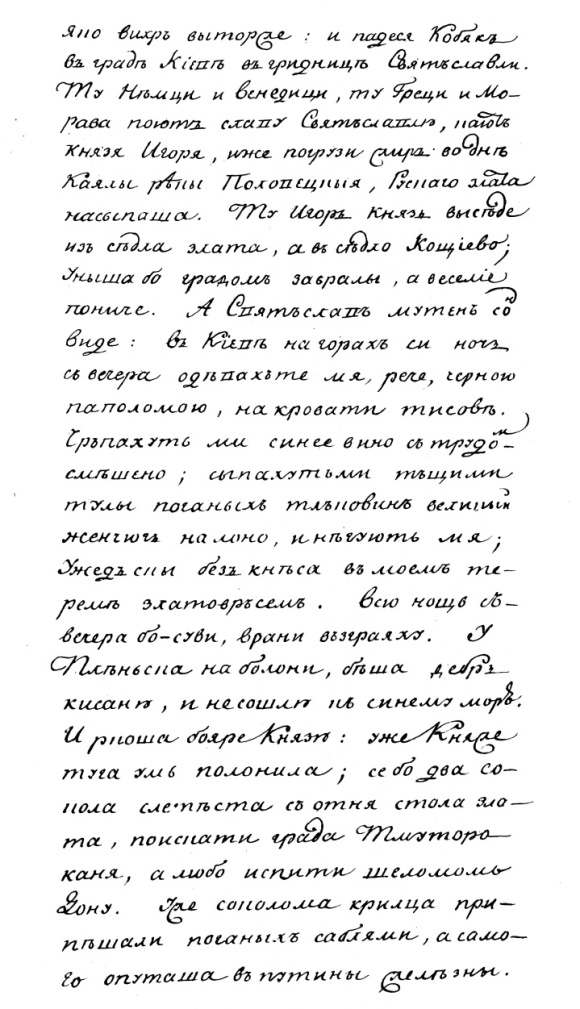 яко вихръ выторже : и падеся Кобякъ
въ градѣ Кіевѣ въ гридницѣ Святъславли.
Ту Нѣмци и Венедици, ту Греци и Мо-
рава поютъ славу Святъславлю, каютъ
князя Игоря, иже погрузи жиръ во днѣ
Каялы рѣкы Половецкыя, Рускаго злата
насыпаша. Ту Игорь Князь высѣде
изъ сѣдла злата, а въ сѣдло Кощіево;
уныша бо градомъ забралы, а веселіе
пониче. А Святъславъ мутенъ сонъ
виде : въ Кіевѣ на горахъ си ночь
съ вечера одѣвахъте мя, рече, чръною
паполомою, на кровати тисовѣ.
Чръпахуть ми синее вино съ трудомъ
смѣшено ; сыпахутьми тъщими
тулы поганыхъ тльковинъ великый
женчюгь на лоно, и нѣгуютъ мя ;
Уже дъскы безъ кнѣса въ моемъ те-
ремѣ златовръсемъ. Всю нощь съ-
вечера бо-суви, врани възграяху. У
Плѣньска на болони, бѣша дебрь
кисаню, и не сошлю къ синему морю.
И ркоша бояре Князю : уже Княже
туга умь полонила ; се бо два со-
кола слетѣста съ отня стола зла-
та, поискати града Тмуторо-
каня, а любо испити шеломомь
Дону. Уже соколома крилца при-
пѣшали поганыхъ саблями, а само-
го опуташа въ путины желѣзны.